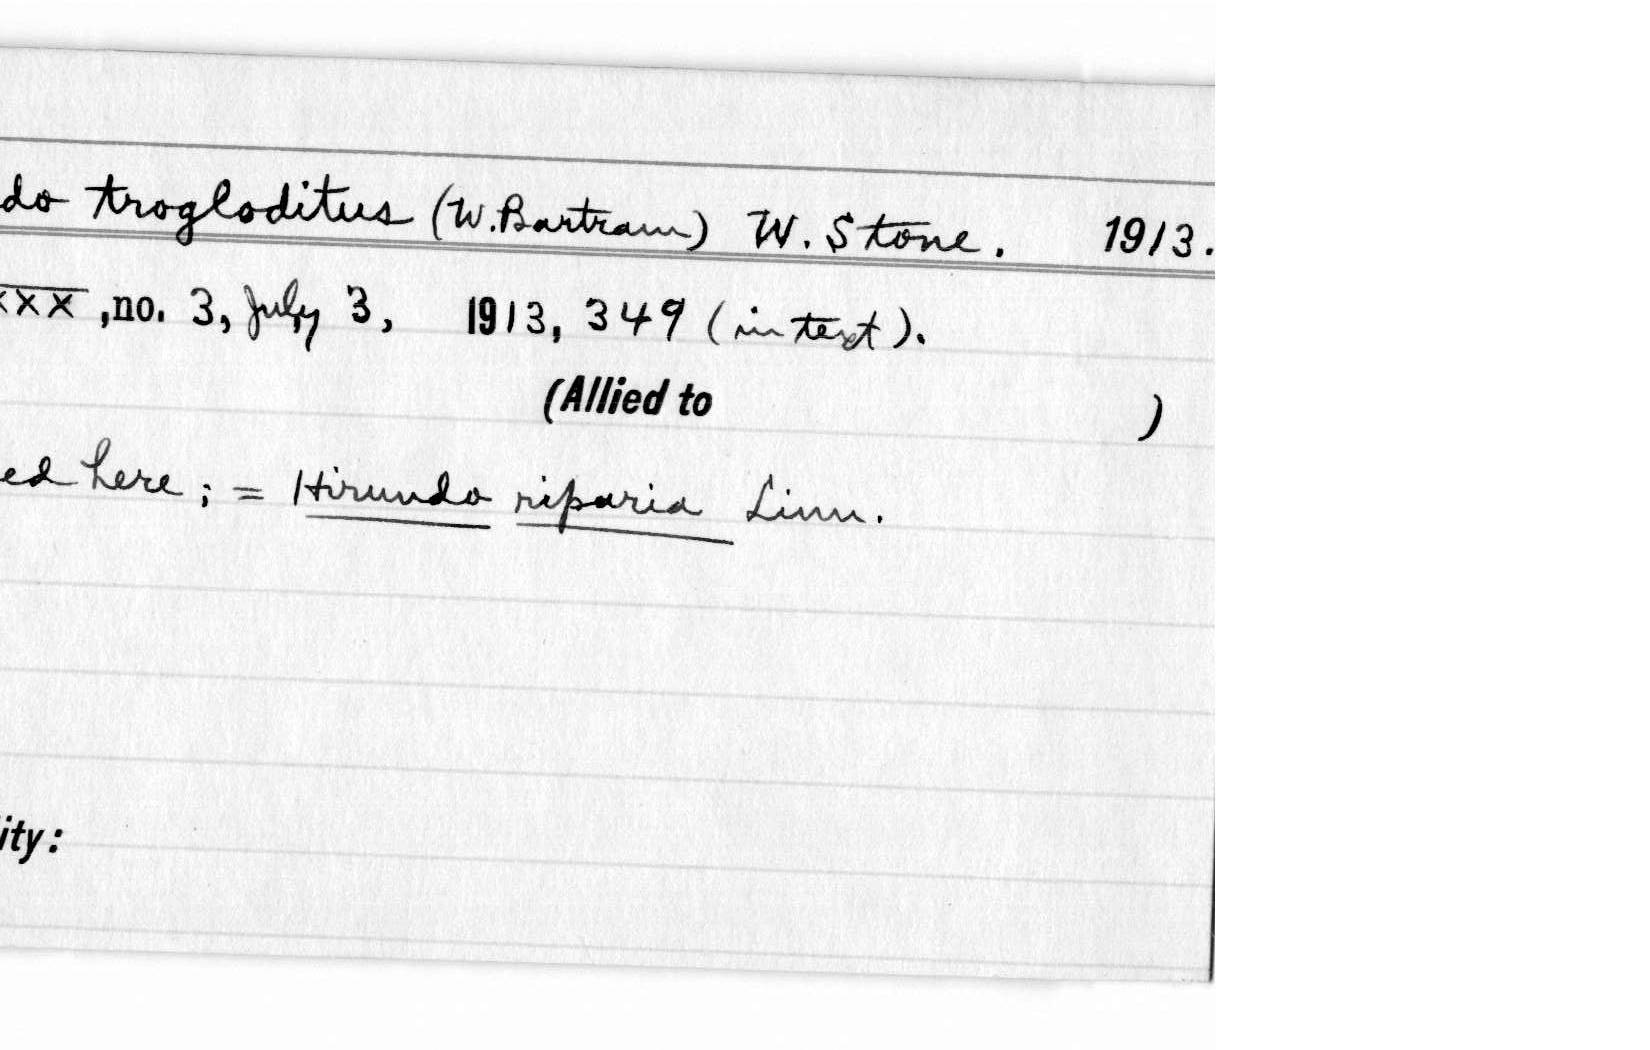 do trogloditus (W. Bartram) W. Stone. 1913.
XXX, no. 3, July 3, 1913, 349 (in text).
(Allied to )
ed here; = Hirundo riparia Linn.
ity: